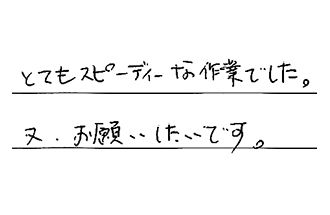 とてもスピーディーな作業でした。
又、お願いしたいです。